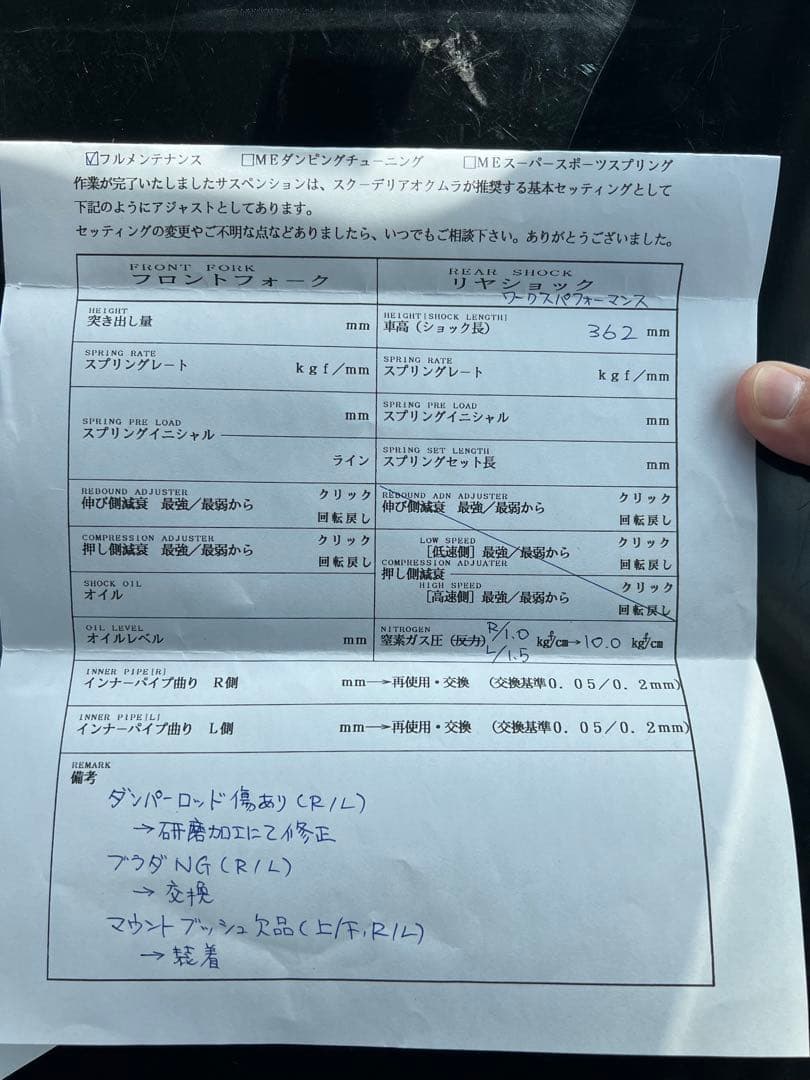 ☑フルメンテナンス □MEダンピングチューニング □MEスーパースポーツスプリング
作業が完了いたしましたサスペンションは、スクーデリアオクムラが推奨する基本セッティングとして
下記のようにアジャストとしてあります。
セッティングの変更やご不明な点などありましたら、いつでもご相談下さい。ありがとうございました。
FRONT FORK
フロントフォーク
REAR SHOCK
リヤショック
ワークスパフォーマンス
HEIGHT
突き出し量 mm
HEIGHT[SHOCK LENGTH]
車高(ショック長) 362 mm
SPRING RATE
スプリングレート kgf/mm
SPRING RATE
スプリングレート kgf/mm
SPRING PRE LOAD
スプリングイニシャル
mm
ライン
SPRING PRE LOAD
スプリングイニシャル mm
SPRING SET LENGTH
スプリングセット長 mm
REBOUND ADJUSTER
伸び側減衰 最強/最弱から
クリック
回転戻し
REBOUND ADN ADJUSTER
伸び側減衰 最強/最弱から
クリック
回転戻し
COMPRESSION ADJUSTER
押し側減衰 最強/最弱から
クリック
回転戻し
LOW SPEED
[低速側]最強/最弱から
クリック
回転戻し
COMPRESSION ADJUATER
押し側減衰
HIGH SPEED
[高速側]最強/最弱から
クリック
回転戻し
SHOCK OIL
オイル
OIL LEVEL
オイルレベル mm
NITROGEN
窒素ガス圧(反力) R/1.0 L/1.5 kgf/cm→10.0 kgf/cm
INNER PIPE[R]
インナーパイプ曲り R側 mm→再使用・交換 (交換基準0.05/0.2mm)
INNER PIPE[L]
インナーパイプ曲り L側 mm→再使用・交換 (交換基準0.05/0.2mm)
REMARK
備考
ダンパーロッド傷あり(R/L)
→研磨加工にて修正
ブラダNG(R/L)
→交換
マウントブッシュ欠品(上/下,R/L)
→装着